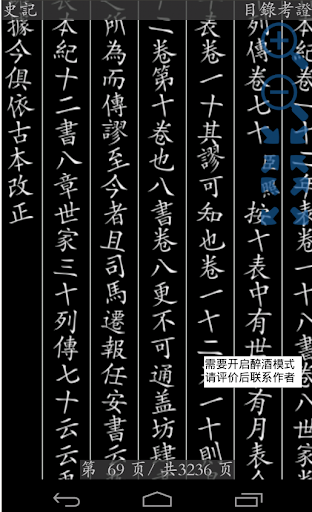 史記
目錄考證
本紀卷一十二年表卷一十八世家
列傳卷七十臣照按十表中有世有月表今
表卷一十其謬可知也卷一十二一十則
二卷第十卷也八書卷八更不可通盖坊肆
所為而傳謬至今者且司馬遷報任安書云
本紀十二書八章世家三十列傳七十云云
據今俱依古本改正
需要开启醉酒模式
请评价后联系作者
第 69 页/共3236 页